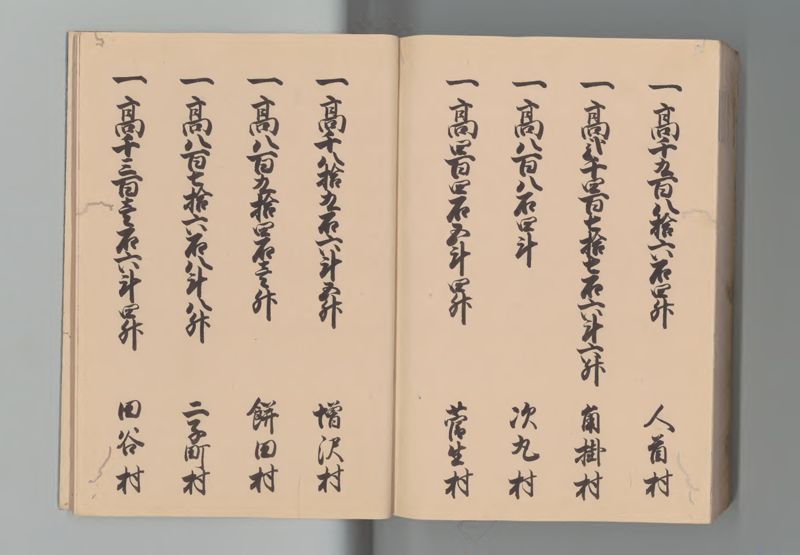 一高千五百八拾六石四升 人首村
一高弐千四百七拾七石六斗六升 角掛村
一高八百八石四斗 次丸村
一高四百四石五斗四升 菅生村
一高千八拾五石六斗五升 増沢村
一高八百九拾四石壱升 餅田村
一高八百七拾六石八斗八升 二子町村
一高千三百壱石六斗四升 田谷村